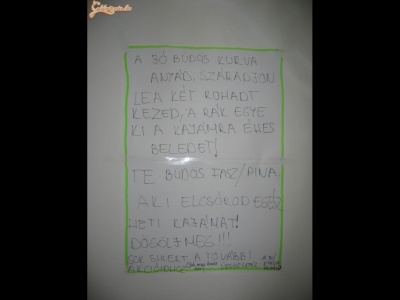 A JÓ BÜDÖS KURVA
ANYÁD, SZÁRADJON
LE A KÉT ROHADT
KEZED, A RÁK EGYE
KI A KAJÁMRA ÉHES
BELEDET!
TE BÜDÖS FASZ/PINA.
AKI ELCSÓROD EGÉSZ
HETI KAJÁNAT!
DÖGÖLJ MEG!!!
SOK SIKERT A TOVÁBBI